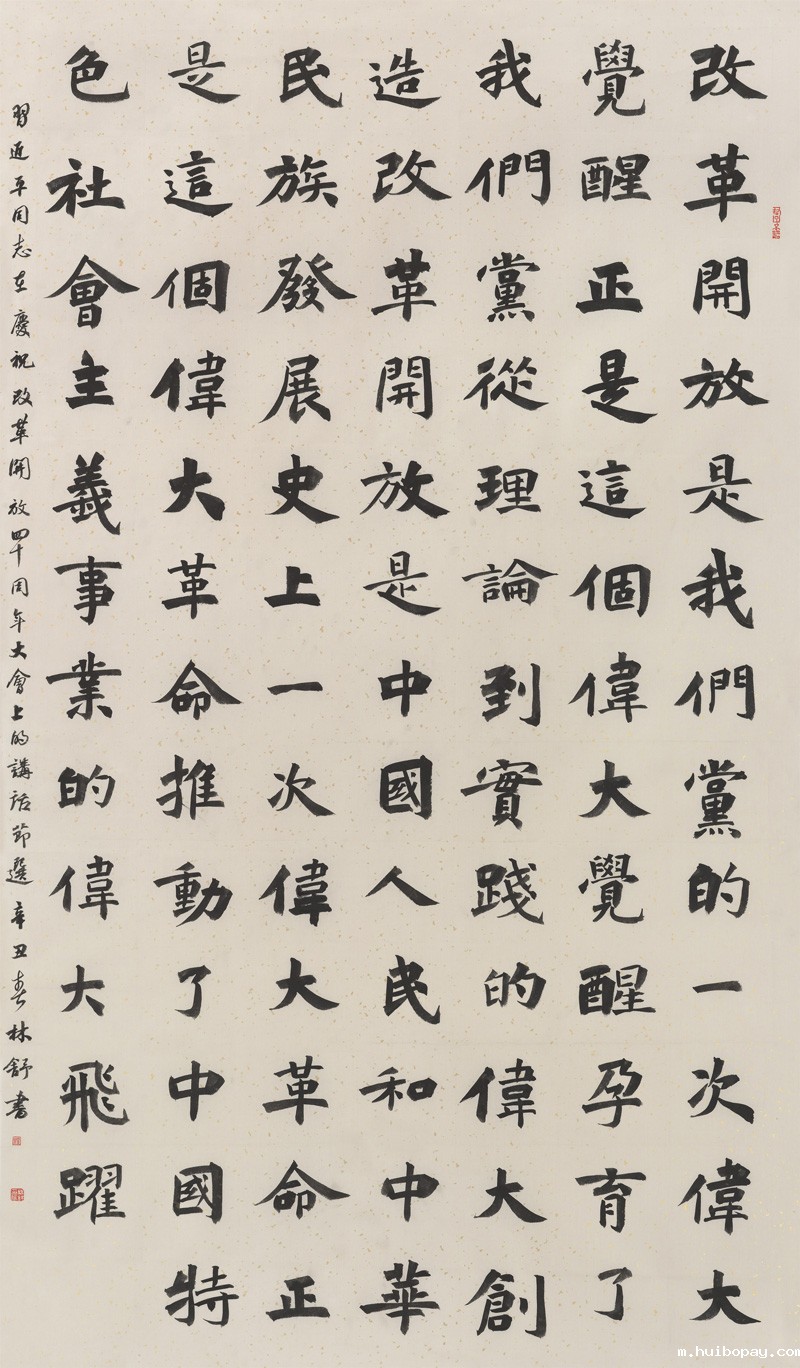 改革開放是我們黨的一次偉大
覺醒正是這個偉大覺醒孕育了
我們黨從理論到實踐的偉大創
造改革開放是中國人民和中華
民族發展史上一次偉大革命正
是這個偉大革命推動了中國特
色社會主義事業的偉大飛躍
習近平同志在慶祝改革開放四十周年大會上的講話節選 辛丑春 林舒書
m.huibopay.com